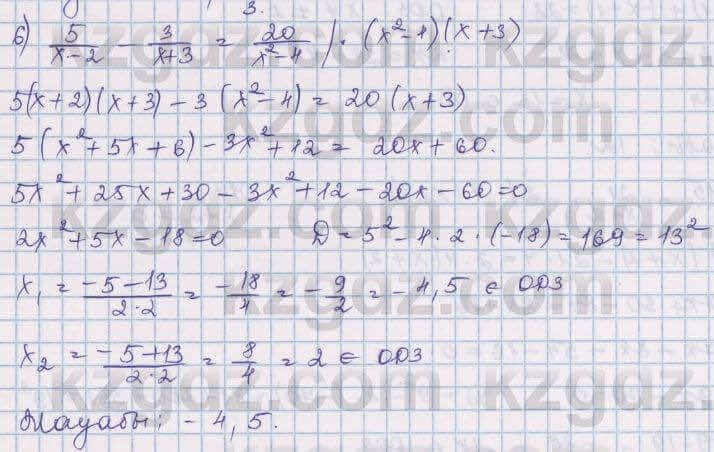 3.
6) 5/(x-2) - 3/(x+3) = 20/(x²-4) | · (x²-4)(x+3)
5(x+2)(x+3) - 3(x²-4) = 20(x+3)
5(x²+5x+6) - 3x²+12 = 20x+60.
5x²+25x+30-3x²+12-20x-60=0
2x²+5x-18=0 D=5²-4·2·(-18)=169=13²
x₁ = (-5-13)/(2·2) = -18/4 = -9/2 = -4,5 ∈ ОДЗ
x₂ = (-5+13)/(2·2) = 8/4 = 2 ∈ ОДЗ
Жауабы: -4,5.
kzgdz.com
kzgdz.com
kzgdz.com
kzgdz.com
kzgdz.com